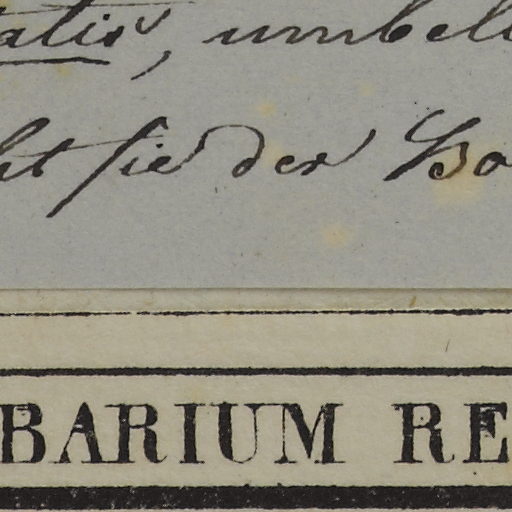 atis, umbell
ht sie der Bo
BARIUM RE